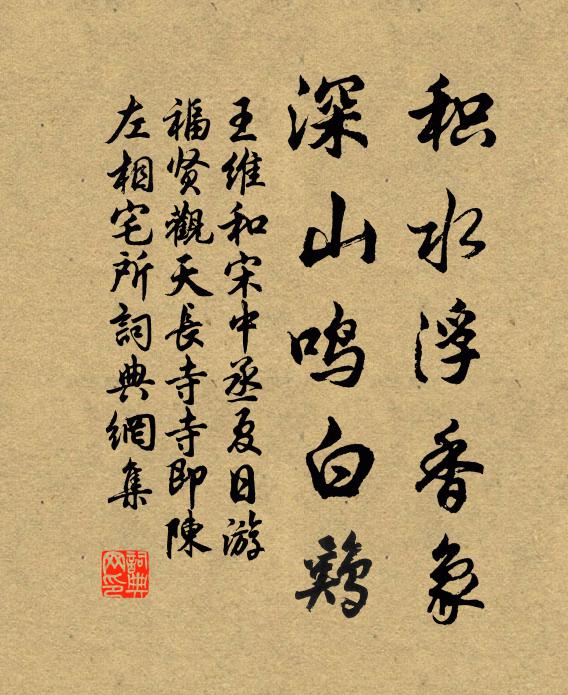 积水浮香象
深山鸣白鷄
王维和宋中丞夏日游
福贤觀天長寺寺即陳
左相宅所詞典網集
詞典
网印